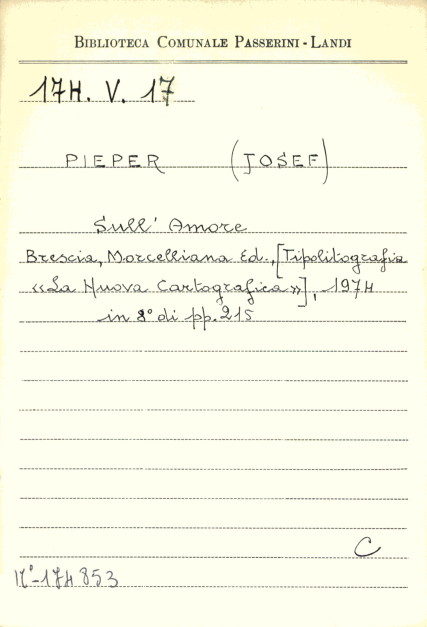 BIBLIOTECA COMUNALE PASSERINI - LANDI
17H. V. 17
PIEPER (JOSEF)
Sull' Amore
Brescia, Morcelliana Ed., [Tipolitografia
«La Nuova Cartografica»], 1974
in 8° di pp. 215
C
N°-174853